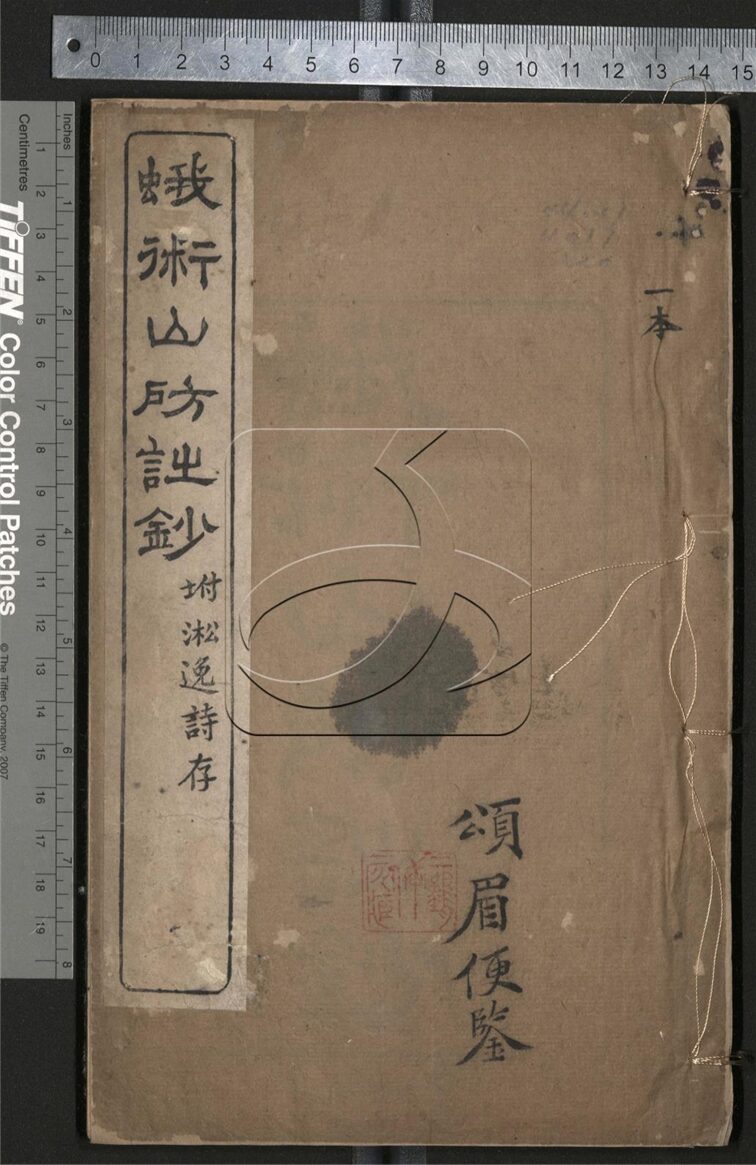 0 1 2 3 4 5 6 7 8 9 10 11 12 13 14 15
Inches 1 2 3 4 5 6 7 8
Centimetres 1 2 3 4 5 6 7 8 9 10 11 12 13 14 15 16 17 18 19
TIFFEN® Color Control Patches
© The Tiffen Company, 2007
一本
頌眉便鍳
蛾術山房詩鈔
坿淞逸詩存